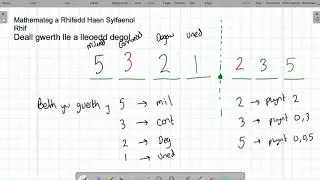 Mathemateg a Rhifedd Haen Sylfaenol
Rhif
Deall gwerth lle a lleoedd degol
miloedd cannoedd Degau uned
5 3 2 1 . 2 3 5
Beth yw gwerth y 5 → mil 2 → pwynt 2
3 → cant 3 → pwynt 0,3
2 → Deg 5 → pwynt 0,0,5
1 → uned